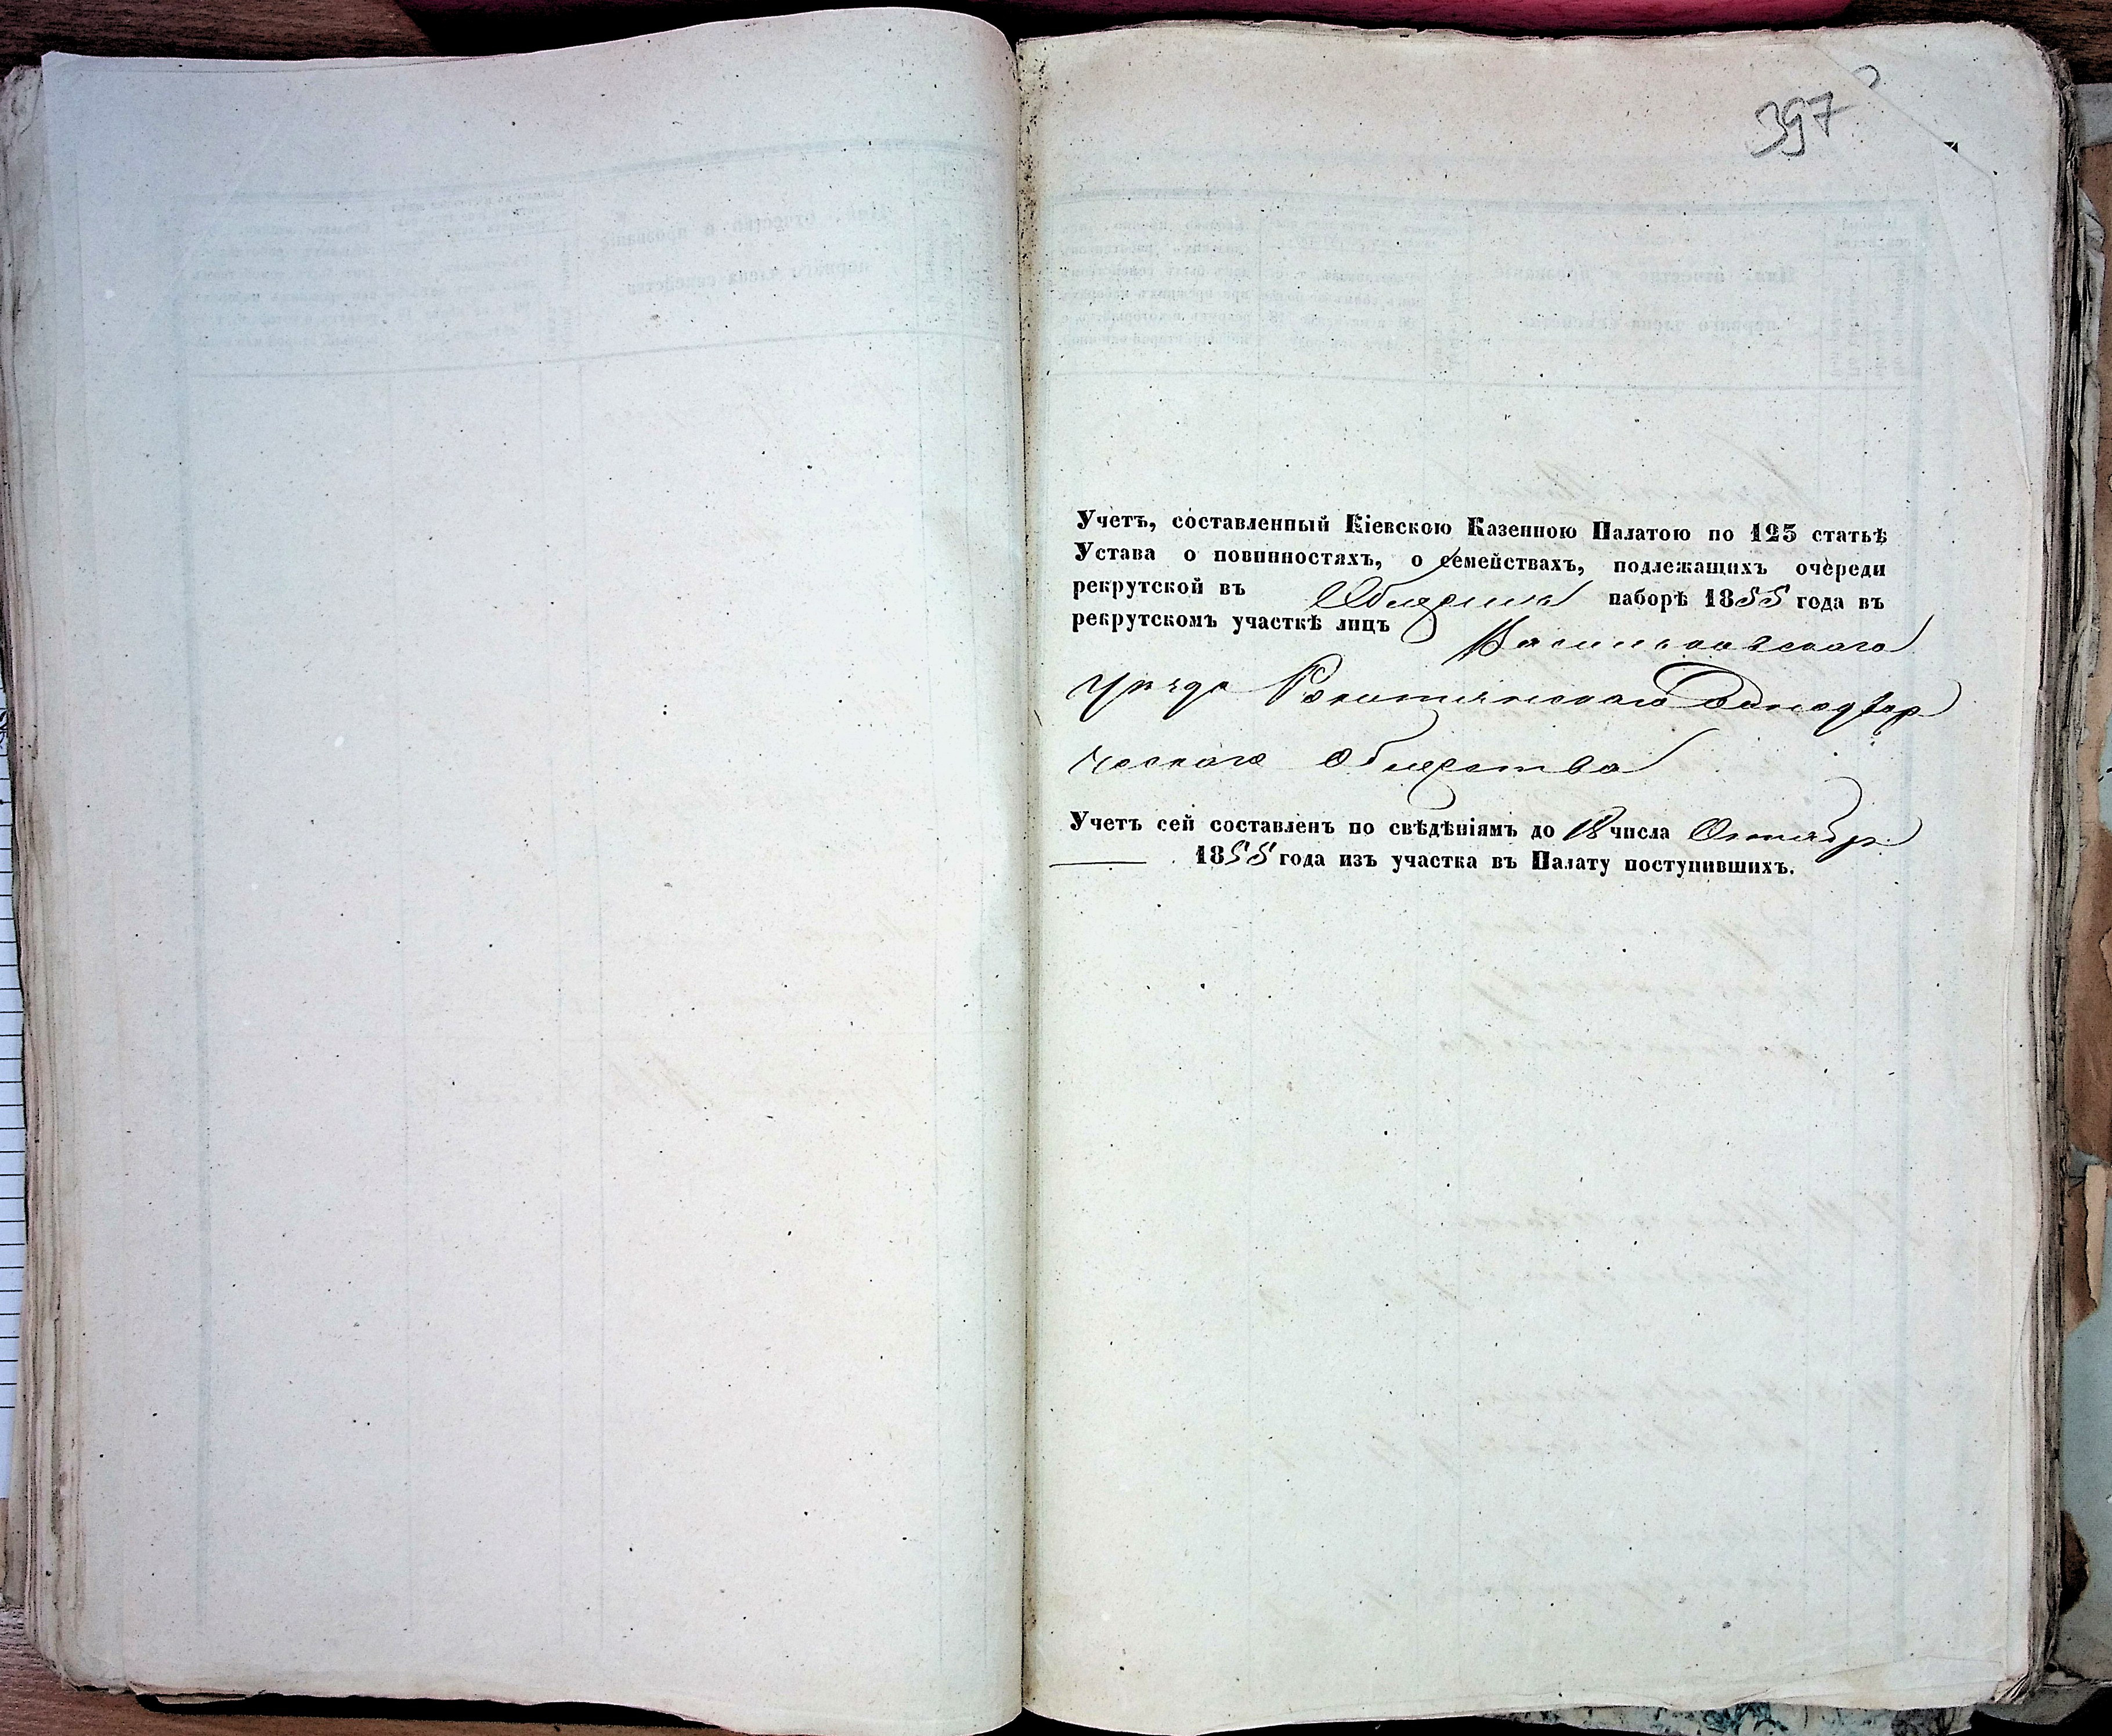 397
Учетъ, составленный Кіевскою Казенною Палатою по 123 статьѣ
Устава о повинностяхъ, о семействахъ, подлежащихъ очереди
рекрутской въ Общемъ наборѣ 1855 года въ
рекрутскомъ участкѣ лицъ Васильковскаго
уѣзда Рокитянскаго Однодвор
ческаго Общества
Учетъ сей составленъ по свѣдѣніямъ до 18 числа Октября
1855 года изъ участка въ Палату поступившихъ.